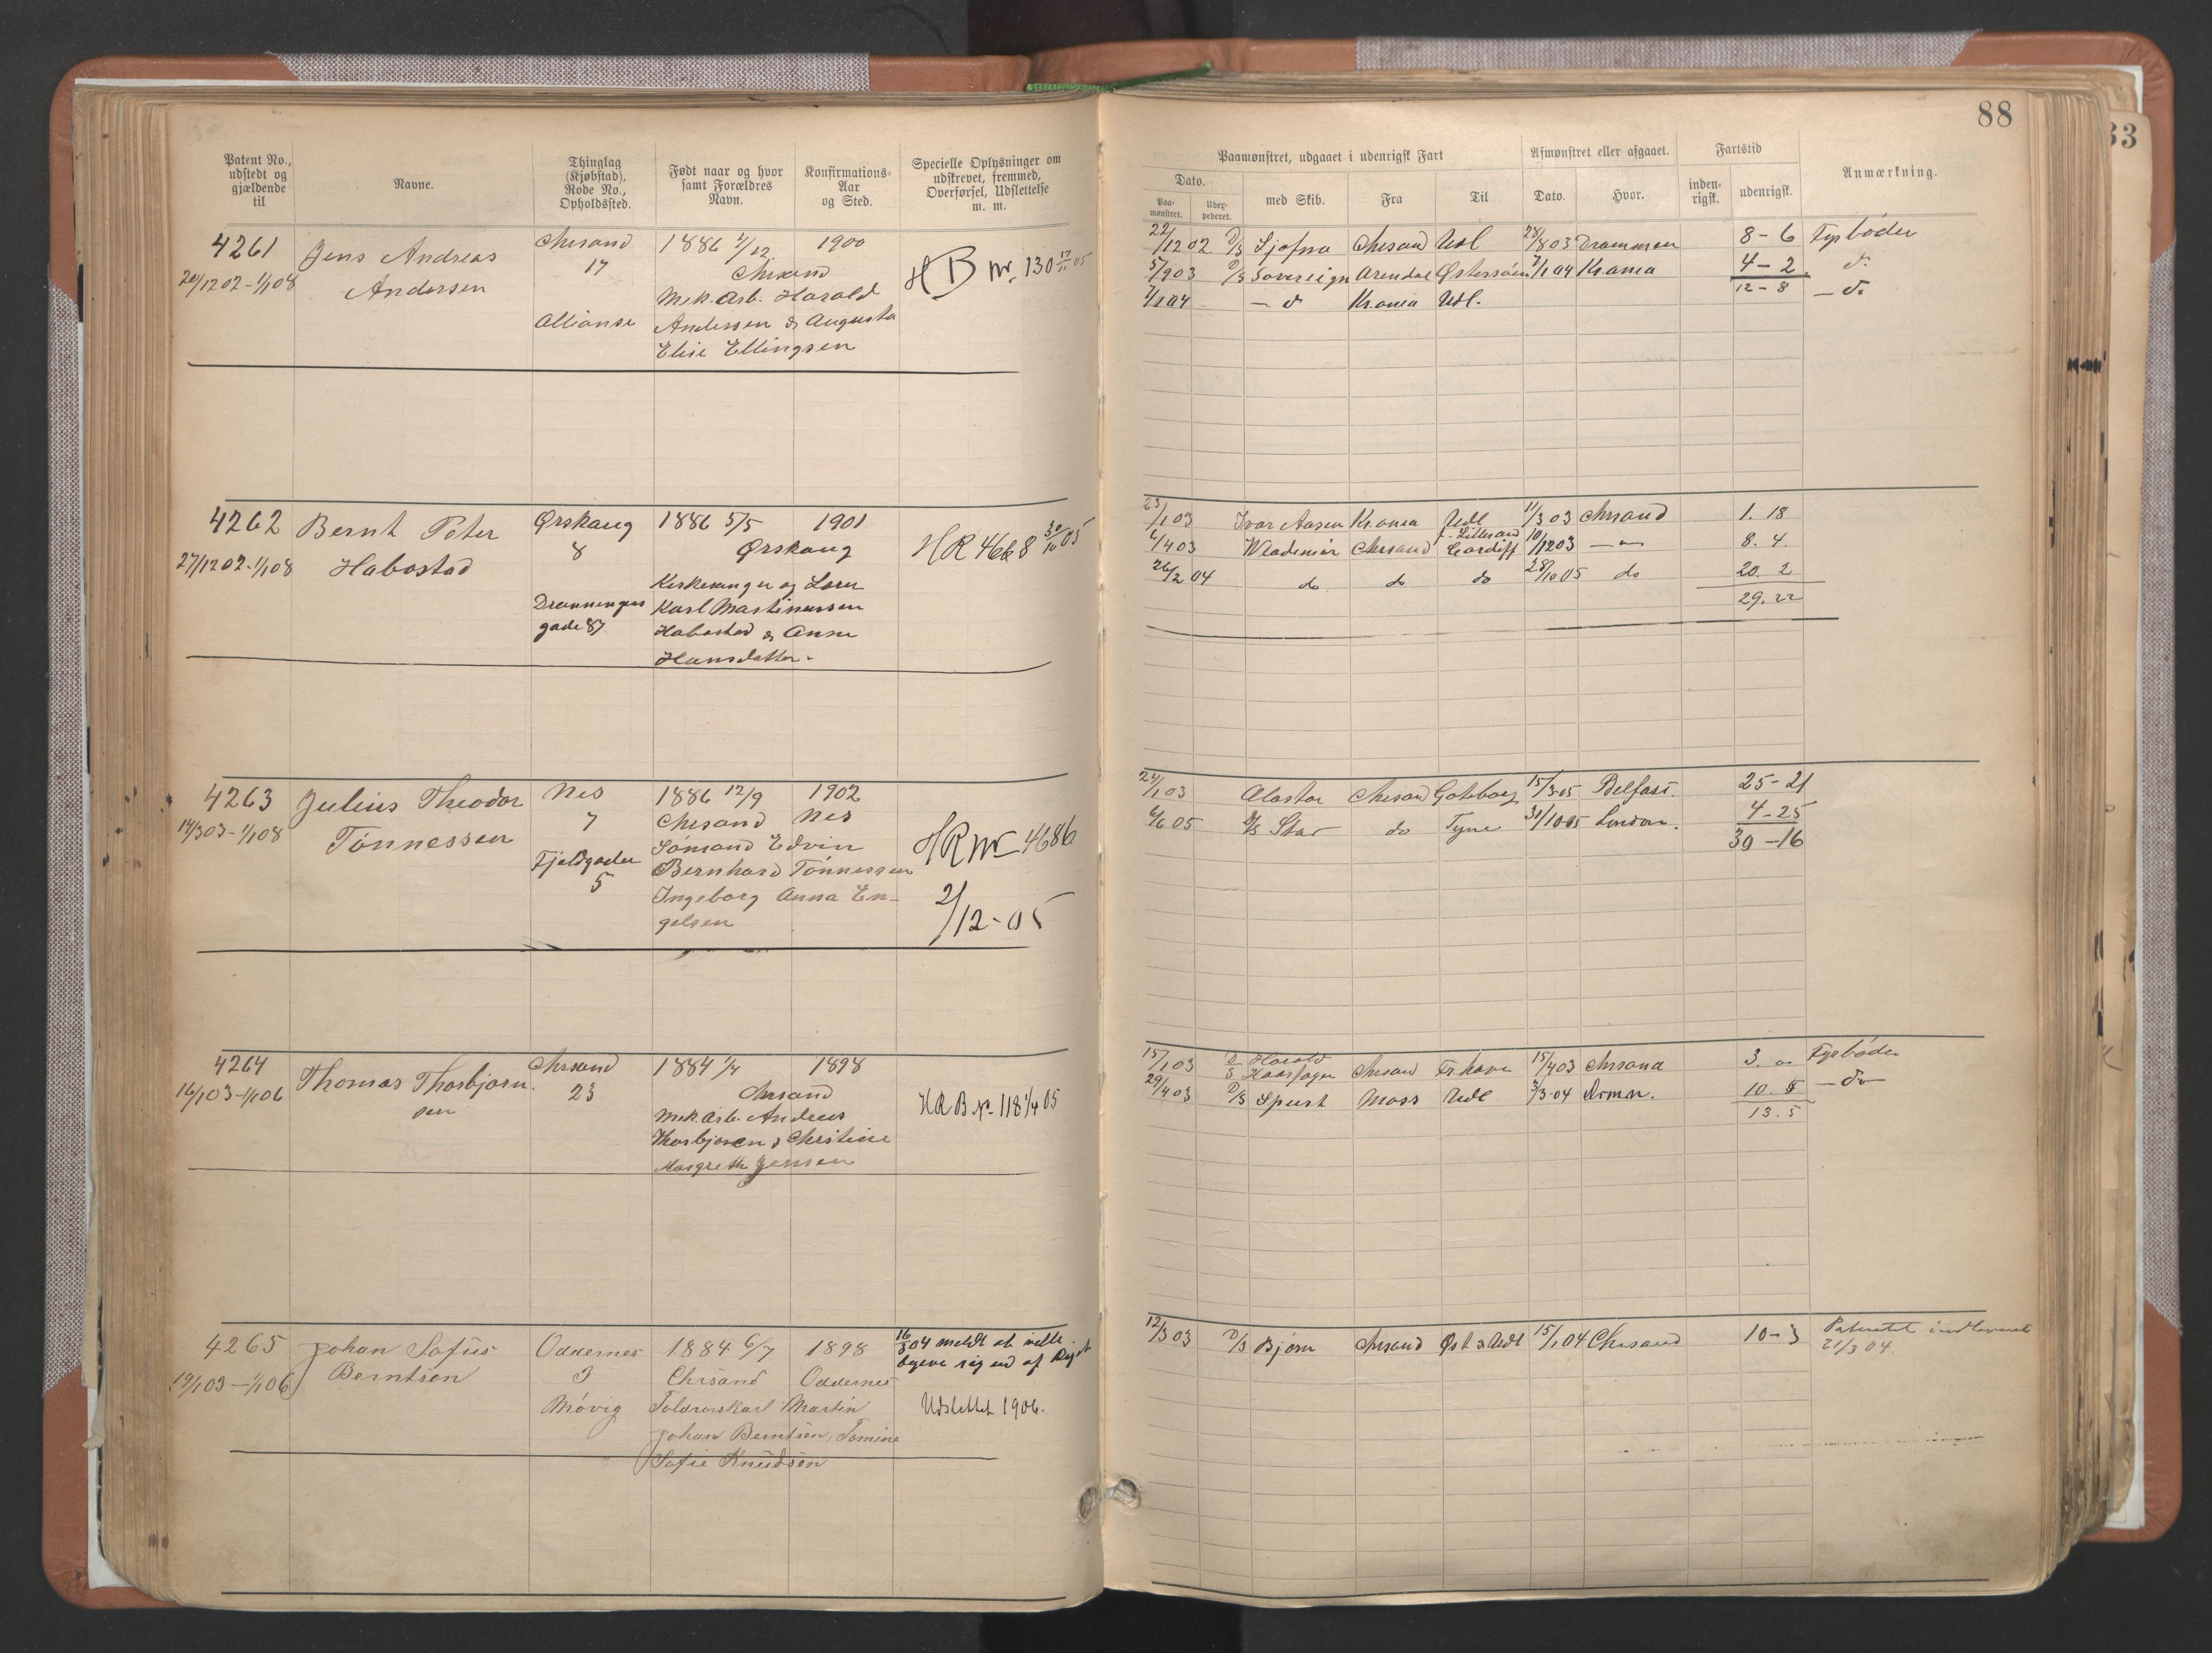 88
33
Patent No., udstedt og gjældende til
Navne.
Thinglag (Kjøbstad), Rode No., Opholdssted.
Født naar og hvor samt Forældres Navn.
Konfirmations-Aar og Sted.
Specielle Oplysninger om udskrevet, fremmed, Overførsel, Udslettelse m. m.
Paamønstret, udgaaet i udenrigsk Fart
Afmønstret eller afgaaet.
Fartstid
Anmærkning.
Dato.
Paa-mønstret.
Udex-pederet.
med Skib.
Fra
Til
Dato.
Hvor.
inden-rigsk.
udenrigsk.
4261
20/12 02 - 1/1 08
Jens Andreas
Andersen
Chrsand
17
Allianse
1886 4/12 1900
Chrsand
Mek. Arb. Harald
Andersen & Augusta
Elise Ellingsen
HB Nr. 130 17/11 05
22/12 02 D/S Sjofna Chrsand Udl 28/8 03 Drammen 8 - 6 Fyrbøder
5/9 03 D/S Sovereign Arendal Østersøen 7/1 04 Krania 4 - 2 d.
12 - 8
7/1 04 — d Krania Udl. — d.
4262
27/12 02 - 1/1 08
Bernt Peter
Habostad
Ørskaug
8
Dronningens
gade 87
1886 5/5 1901
Ørskaug
Kirkesanger og Lærer
Karl Martinussen
Habostad & Anne
Hansdatter.
HR 4668 30/10 05
23/1 03 Ivar Aasen Krania Udl 11/3 03 Chrsand 1. 18
6/4 03 Wlademir Chrsand f. Lillesand Cardiff 10/12 03 — 8. 4.
26/2 04 do do do 28/10 05 do 20. 2
29. 22
4263
14/3 03 - 1/1 08
Julius Theodor
Tønnessen
Nes
7
Fjeldgaden
5
1886 12/9 1902
Chrsand Nes
Sømand Edvin
Bernhard Tønnessen
Ingeborg Anna En-
gelsen
HR Nr 4686
2/12 - 05
24/1 03 Alastor Chrsand Gøteborg 15/3 05 Belfast. 25 - 21
6/6 05 D/S Star do Tyne 31/10 05 London. 4 - 25
30 - 16
4264
16/1 03 - 1/1 06
Thomas Thorbjørn.
sen
Chrsand
23
1884 1/4 1898
Chrsand
Mek. Arb. Andreas
Thorbjørnsen & Christine
Margrethe Jensen
HRB No. 118 1/4 05
15/1 03 D/S Harald Haarfager Chrsand Fr.havn 15/4 03 Chrsand 3. „ Fyrbøder
29/4 03 D/S Spurt Moss Udl 2/3 04 Drmn. 10. 5 — do —
13. 5
4265
19/1 03 - 1/1 06
Johan Sofus
Berntsen
Oddernes
3
Møvig
1884 6/7 1898
Chrsand Oddernes
Toldrorskarl Martin
Johan Berntsen, Tomine
Sofie Knudsen
16/3 04 meldt at ville
begive sig ud af Riget
Udslettet 1906.
12/3 03 D/S Bjørn Chrsand Øst & Udl 15/1 04 Chrsand 10 - 3 Patentet indleveret
21/3 04.